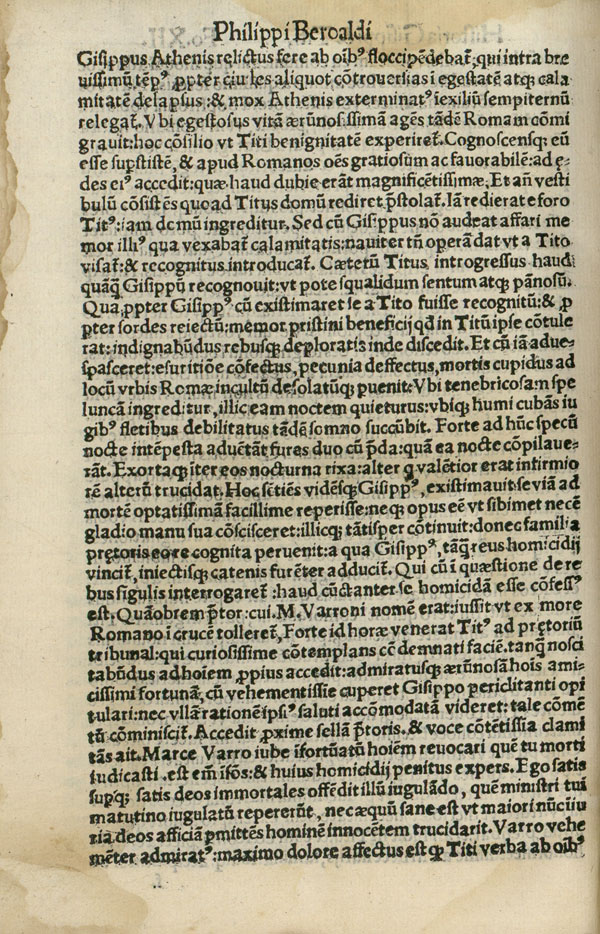 Philippi Beroaldi
Gisippus Athenis relictus fere ab oibꝰ floccipēdebat᷑: qui intra bre
uissimū tēpꝰ ꝓpter ciuiles aliquot cōtrouersias i egestatē atqꝫ cala
mitatē delapsus: & mox Athenis exterminatꝰ iexiliū sempiternū
relegat᷑. Vbi egestosus vitā ærūnosissimā agēs tādē Romam cōmi
grauit: hoc cōsilio vt Titi benignitatē experiret᷑. Cognoscensqꝫ eū
esse suꝑstitē, & apud Romanos oēs gratiosum ac fauorabilē: ad ę⸗
des eiꝰ accedit: quæ haud dubie erāt magnificētissimæ. Et añ vesti
bulū cōsistēs quoad Titus domū rediret p̄stolat᷑. Iā redierat e foro
Titꝰ: iam demū ingreditur. Sed cū Gisippus nō audeat affari me
mor illiꝰ qua vexabat᷑ calamitatis: nauiter tn̄ operā dat vt a Tito
visat᷑: & recognitus introducat᷑. Cæterū Titus, introgressus haud
quāq̄ Gisippū recognouit: vt pote squalidum sentum atqꝫ pānosū.
Qua ꝓpter Gisippꝰ cū existimaret se a Tito fuisse recognitū: & ꝓ
pter sordes reiectū: memor pristini beneficij qd̄ in Titū ipse cōtule
rat: indignabūdus rebusqꝫ deploratis inde discedit. Et cū iā adue⸗
spasceret: esuritiōe cōfectus, pecunia deffectus, mortis cupidus ad
locū vrbis Romæ incultū desolatūqꝫ puenit: Vbi tenebricosam spe
luncā ingreditur, illic eam noctem quieturus: vbiqꝫ humi cubās iu
gibꝰ fletibus debilitatus tādē somno succūbit. Forte ad hūc specū
nocte intēpesta aduētāt fures duo cū p̄da: quā ea nocte cōpilaue⸗
rāt. Exortaqꝫ iter eos nocturna rixa: alter q valētior erat infirmio
rē alterū trucidat. Hoc sētiēs vidēsqꝫ Gisippꝰ, existimauit se viā ad
mortē optatissimā facillime reperisse: neqꝫ opus eē vt sibimet necē
gladio manu sua cōscisceret: illicqꝫ tātisper cōtinuit: donec familia
prętoris eore cognita peruenit: a qua Gisippꝰ, tāq̄ reus homicidij
vincit᷑, iniectisqꝫ catenis furēter adducit᷑. Qui cū i quæstione de re
bus sigulis interrogaret᷑: haud cūctanter se homicidā esse cōfessꝰ
est. Quāobrem p̄tor: cui. M. Varroni nomē erat: iussit vt ex more
Romano i crucē tolleret᷑. Forte id horæ venerat Titꝰ ad prętoriū
tribunal: qui curiosissime cōtemplans cōdemnati faciē. tanq̄ nosci
tabūdus ad hoiem ꝓpius accedit: admiratusqꝫ ærūnosā hois ami⸗
cissimi fortunā, cū vehementissie cuperet Gisippo periclitanti opi
tulari: nec vllā rationē ipsiꝰ saluti accōmodatā videret: tale cōmē
tū cōminiscit᷑. Accedit ꝓxime sellā p̄toris. & voce cōtētissia clami
tās ait. Marce Varro iube ifortuātū hoiem reuocari quē tu morti
iudicasti .est em̄ isōs: & huius homicidij penitus expers. Ego satis
suꝑqꝫ satis deos immortales offēdit illū iugulādo, quē ministri tui
matutino iugulatū repererūt, nec æquū sane est vt maiori nūc iiu
ria deos afficiā pmittēs hominē innocētem trucidarit. Varro vehe
mēter admiratꝰ: maximo dolore affectus est qꝫ Titi verba ab oibꝰ